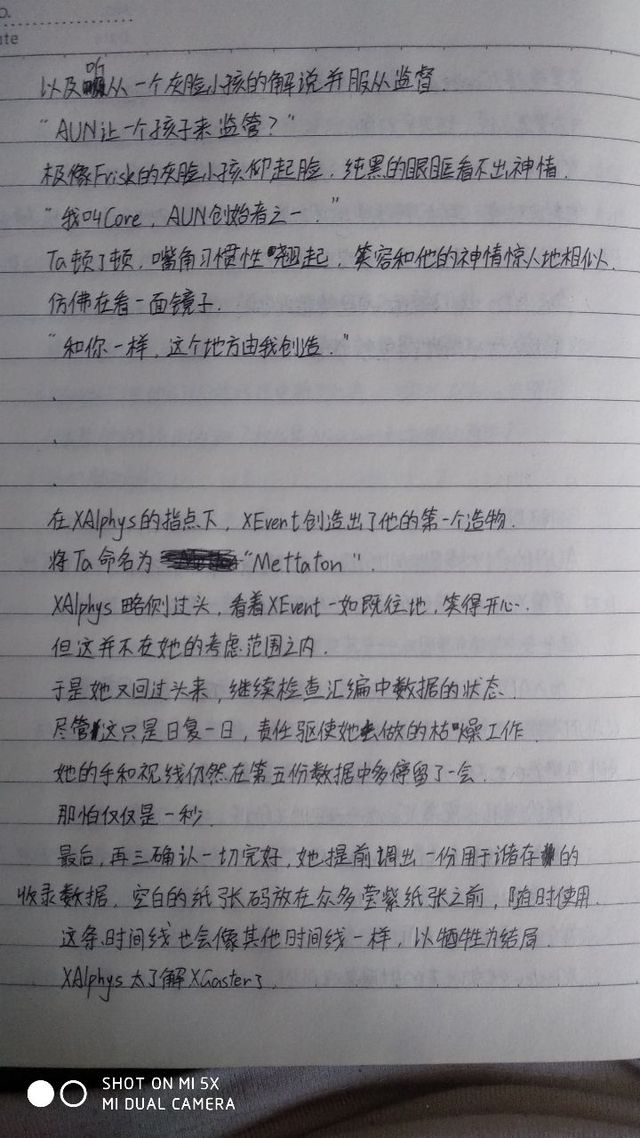 o.
ate
以及听从一个灰脸小孩的解说并服从监督.
“AUN让一个孩子来监管？”
极像Frisk的灰脸小孩仰起脸，纯黑的眼眶看不出神情.
“我叫Core，AUN创始者之一.”
Ta顿了顿，嘴角习惯性翘起，笑容和他的神情惊人地相似.
仿佛在看一面镜子.
“和你一样，这个地方由我创造.”
.
.
.
在XAlphys的指点下，XEvent创造出了他的第一个造物.
将Ta命名为“Mettaton”.
XAlphys略侧过头，看着XEvent一如既往地，笑得开心.
但这并不在她的考虑范围之内.
于是她又回过头来，继续检查汇编中数据的状态.
尽管这只是日复一日，责任驱使她做的枯燥工作.
她的手和视线仍然在第五份数据中多停留了一会.
那怕仅仅是一秒.
最后，再三确认一切完好，她提前调出一份用于储存的
收录数据，空白的纸张码放在众多莹紫纸张之前，随时使用.
这条时间线也会像其他时间线一样，以牺牲为结局.
XAlphys太了解XGaster了.
SHOT ON MI 5X
MI DUAL CAMERA